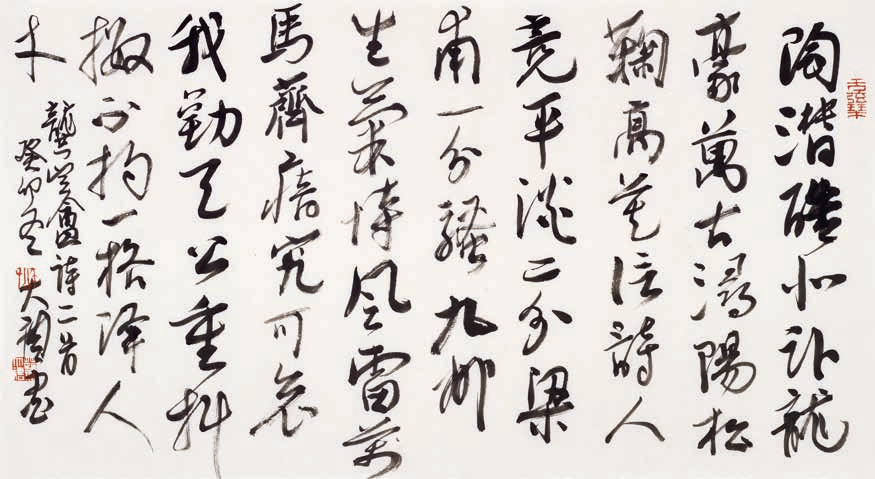 陶潜酷似卧龍
豪萬古潯陽松
鞠高莫信詩人
竟平淡二分梁
甫一分騷九州
生氣恃風雷萬
馬齊瘖究可哀
我勸天公重抖
擻不拘一格降人
才
龔定盦詩二首
癸卯冬大書